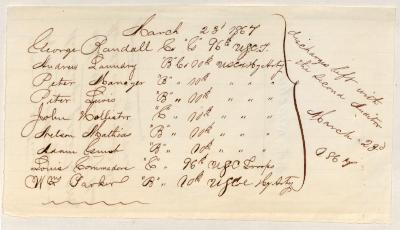 March 23d 1867
George Randall Co "C" 96th USCT.
Andrew Laundry "B" Co 10th USCHy Arty
Peter Manager "B" " 10th " " "
Peter Lewis "B" " 10th " " "
John Hollister "C" " 10th " " "
Nelson Mathias "B" " 10th " " "
Adam "B" " 10th " " "
Louis Commodore "C" " 96th USC Troops
Wm Parker "B" " 10th USC Hy Arty
discharges left with
the Second Auditor
March 23d
1867